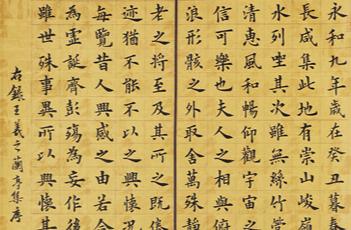 永和九年歲在癸丑暮春
長咸集此地有崇山峻嶺
水列坐其次雖無絲竹管
清惠風和暢仰觀宇宙之
信可樂也夫人之相與俯
浪形骸之外取舍萬殊靜
老之將至及其所之既倦
迹猶不能不以之興懷況
每覽昔人興感之由若合
為虛誕齊彭殤為妄作後
雖世殊事異所以興懷其
右錄王羲之蘭亭集序